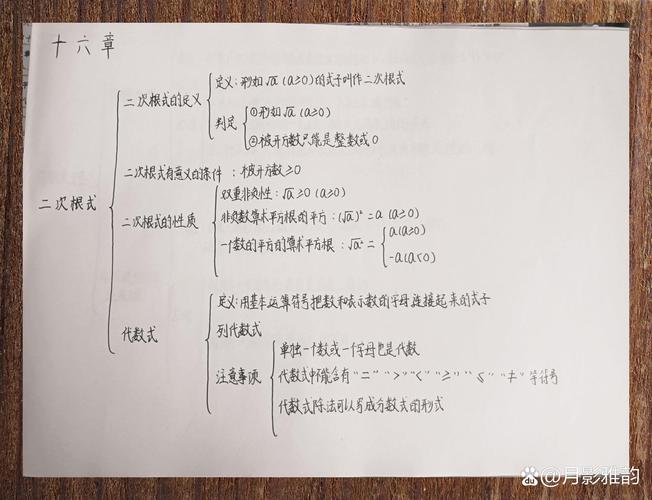 十六章
二次根式
二次根式的定义
定义:形如√a (a≥0)的式子叫作二次根式
判定
①形如√a (a≥0)
②被开方数只能是整数或0
二次根式有意义的条件:被开方数≥0
二次根式的性质
双重非负性:√a≥0 (a≥0)
非负数算术平方根的平方:(√a)²=a (a≥0)
一个数的平方的算术平方根:√a²=
a(a≥0)
-a(a<0)
代数式
定义:用基本运算符号把数和表示数的字母连接起来的式子
列代数式
注意事项
单独一个数或一个字母也是代数
代数式中不能含有"="">""<""≥""≤""≠"等符号
代数式除法可以写成分数式的形式
@月影雅韵